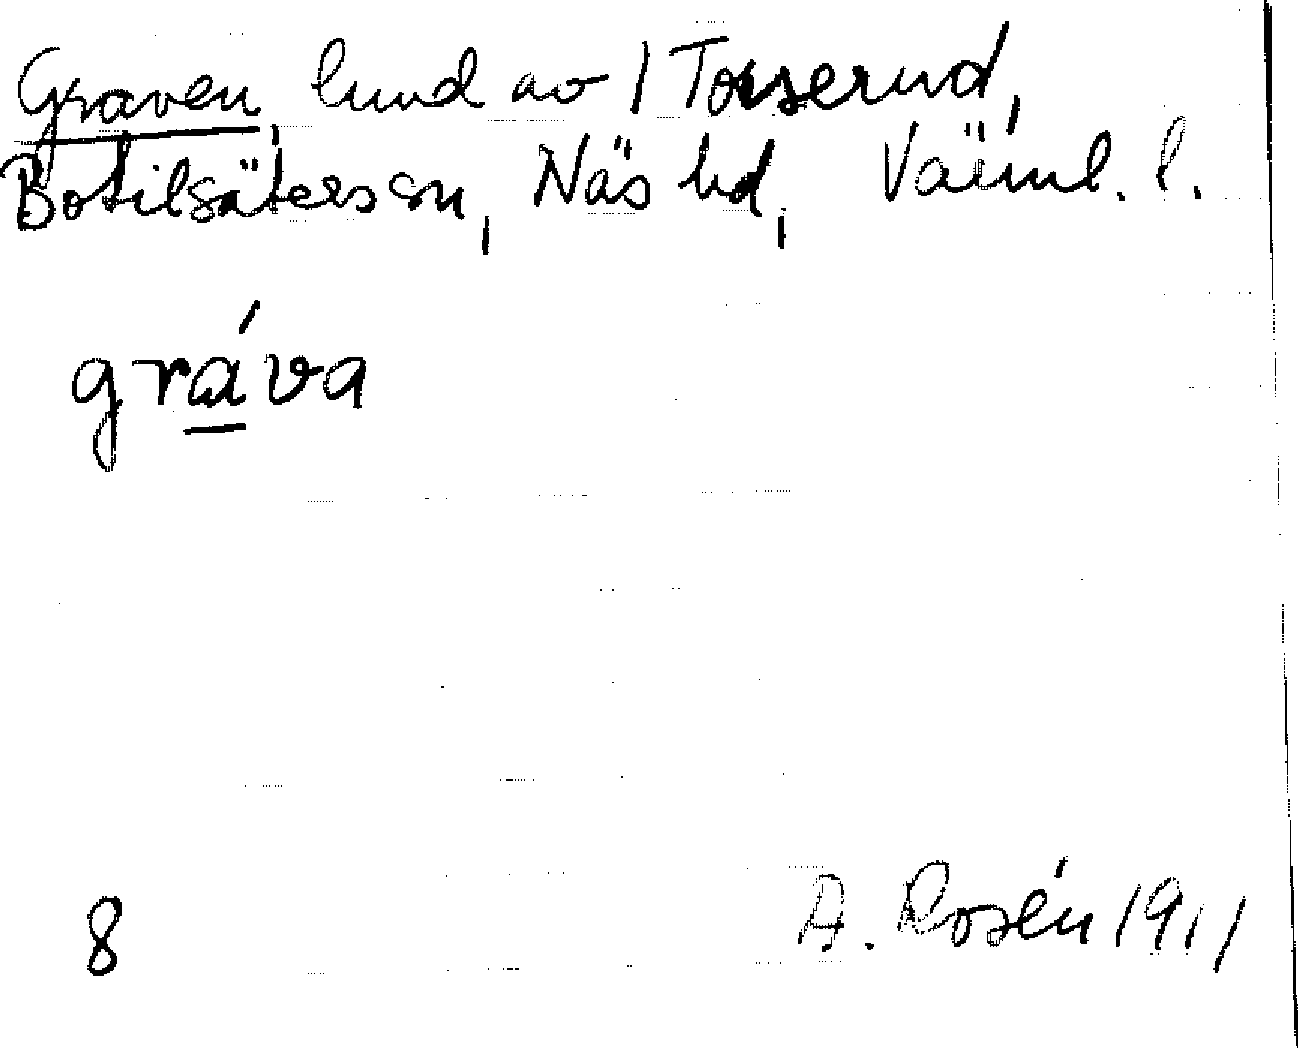 Graven, lund av 1 Torserud,
Botilsäters sn, Näs hd, Värml. l.
gráva
8
A. Rosén 1911